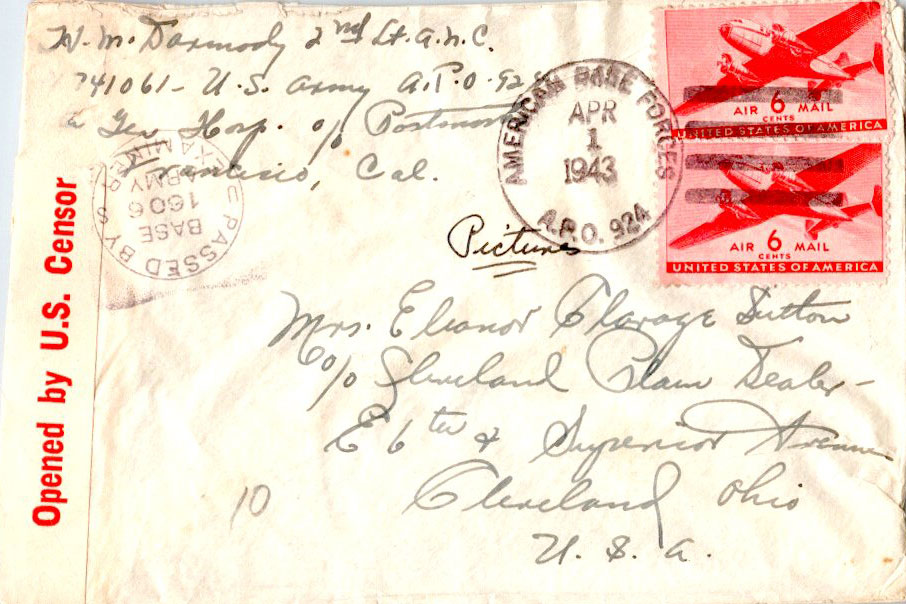 W. M. Darmody 2nd Lt. A.N.C.
741061 - U.S. Army A.P.O. 924
Gen Hosp. c/o Postmaster
Francisco, Cal.
AMERICAN BASE FORCES
APR
1
1943
A.P.O. 924
AIR 6 MAIL
CENTS
UNITED STATES OF AMERICA
AIR 6 MAIL
CENTS
UNITED STATES OF AMERICA
PASSED BY
BASE
1606
ARMY
EXAMINER
Opened by U.S. Censor
Pictures
Mrs. Eleanor Clarage Sutton
c/o Cleveland Plain Dealer -
E 6th & Superior Avenue
Cleveland Ohio
U.S.A.
10